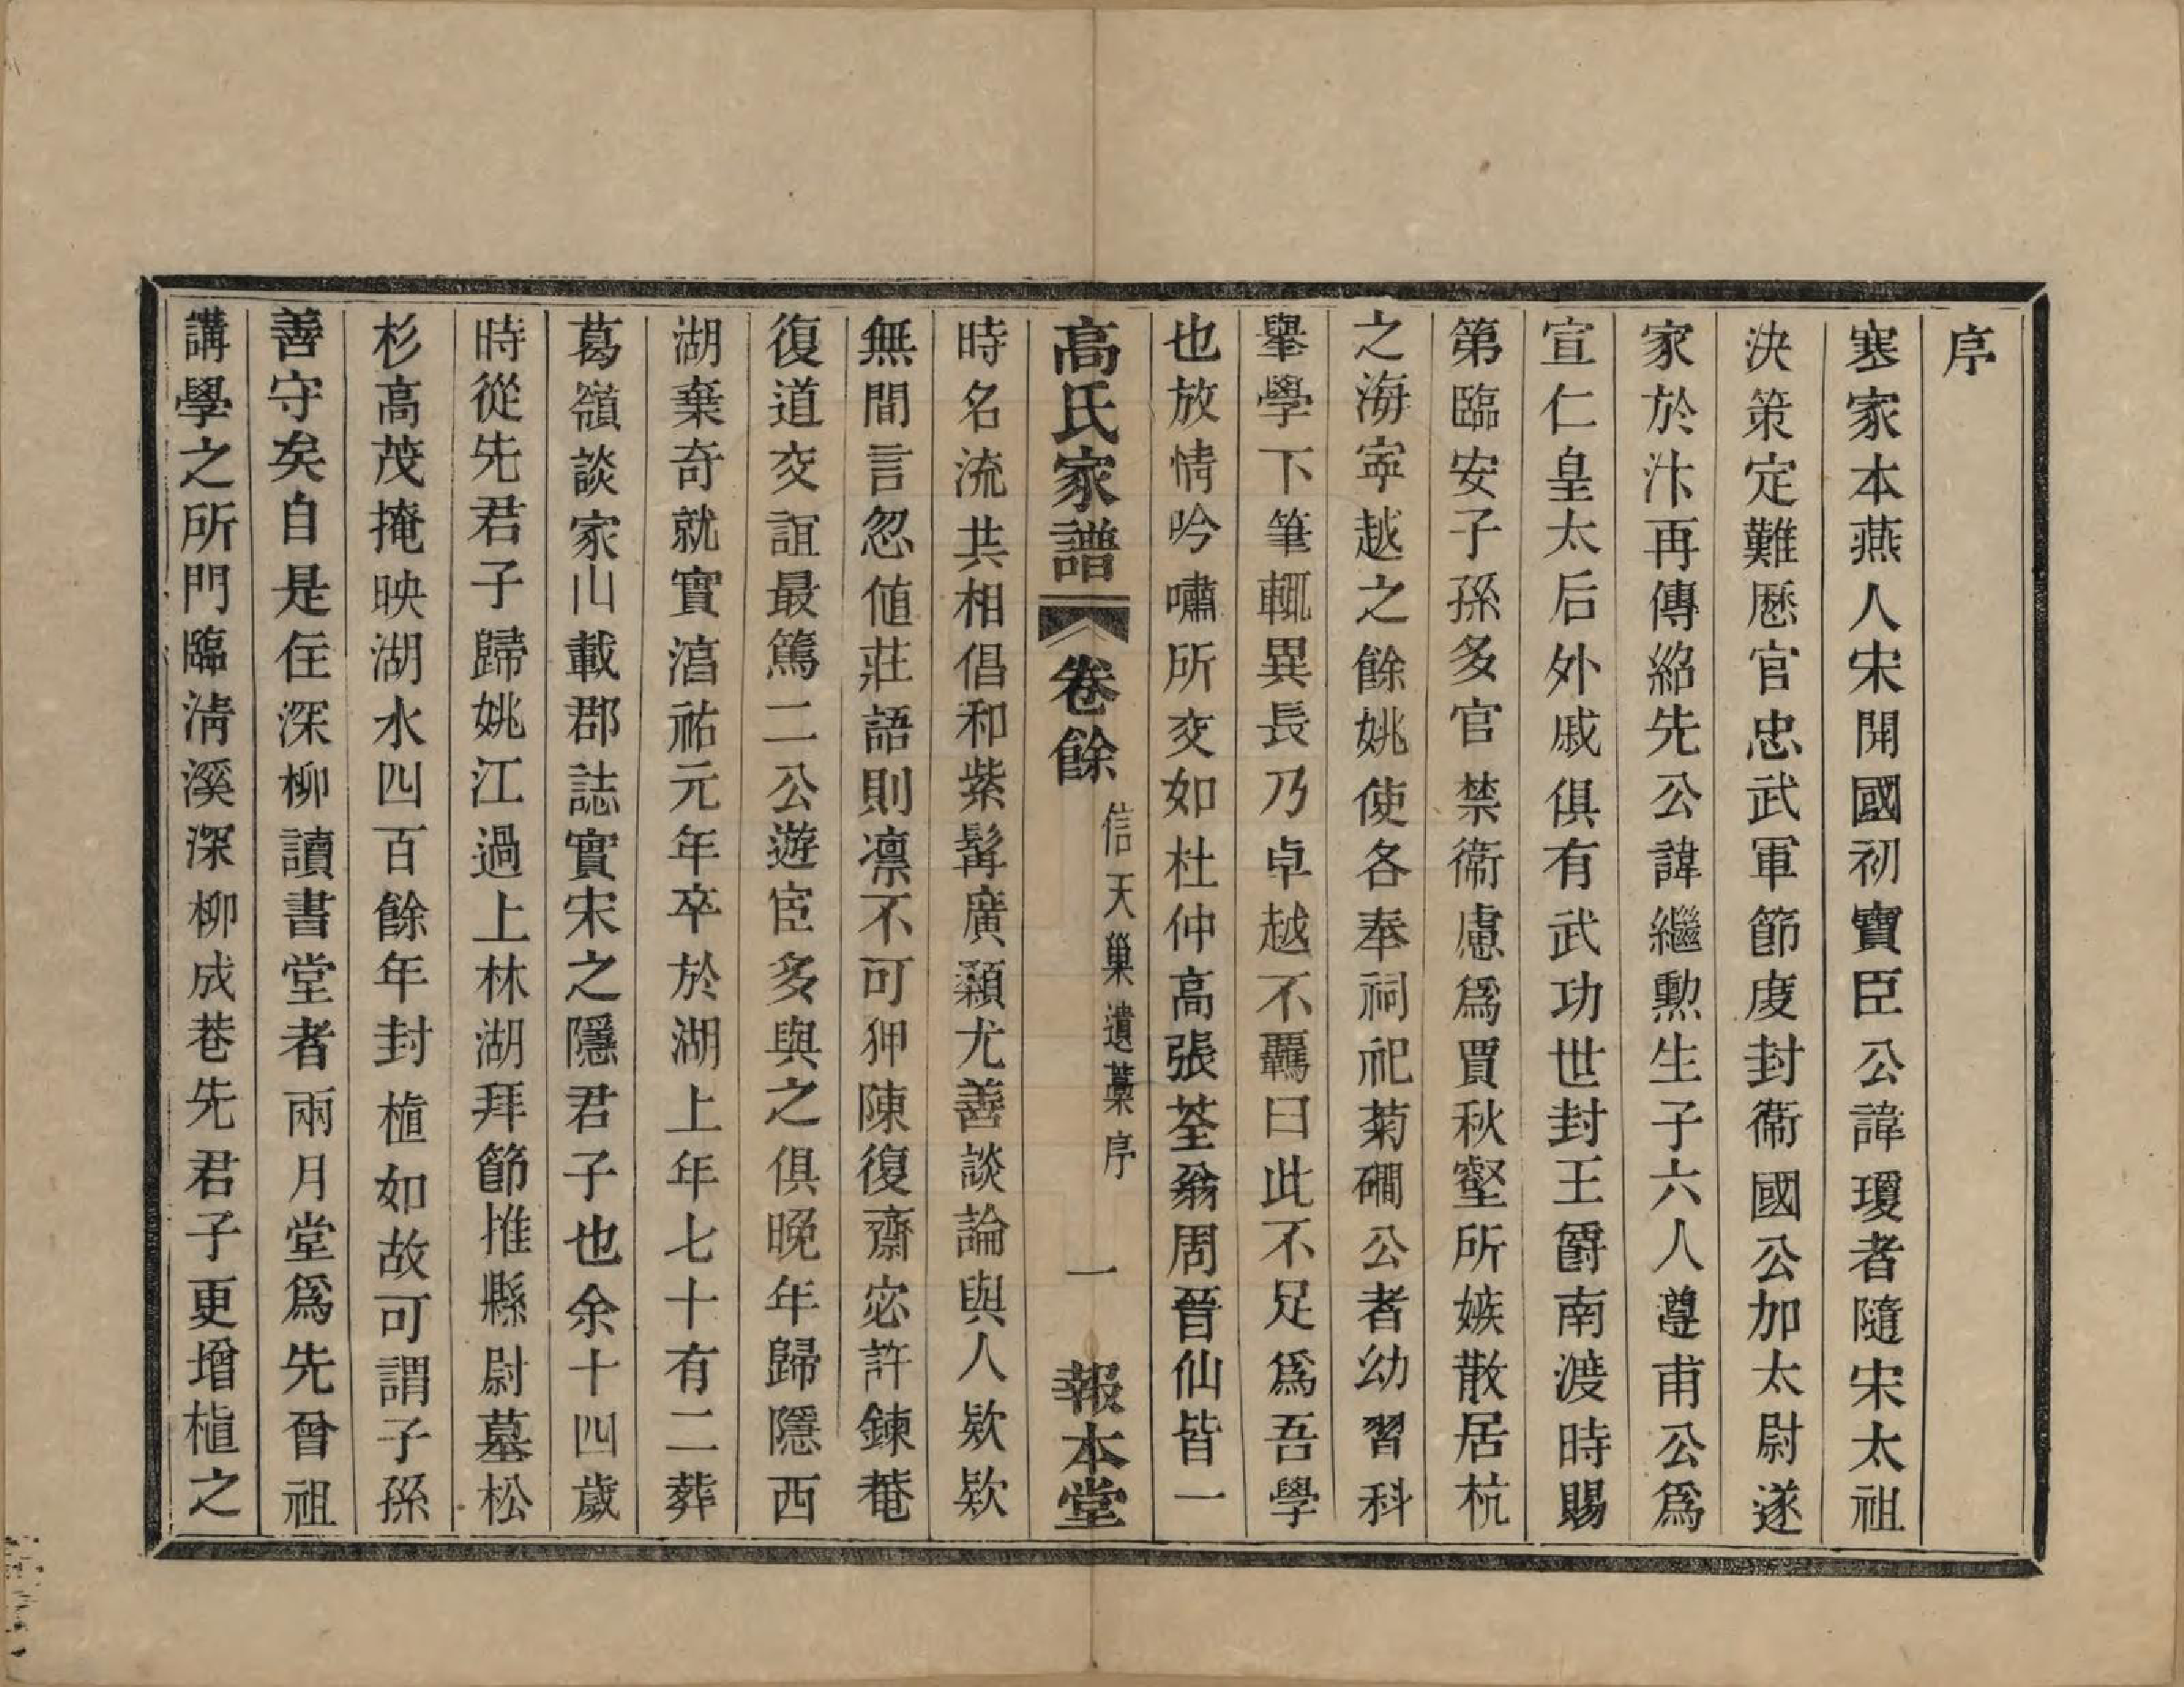 序
寒家本燕人宋開國初寶臣公諱瓊者隨宋太祖
決策定難歷官忠武軍節度封衞國公加太尉遂
家於汴再傳紹先公諱繼勳生子六人遵甫公爲
宣仁皇太后外戚俱有武功世封王爵南渡時賜
第臨安子孫多官禁衞慮爲賈秋壑所嫉散居杭
之海寧越之餘姚使各奉祠祀菊磵公者幼習科
舉學下筆輒異長乃卓越不羈曰此不足爲吾學
也放情吟嘯所交如杜仲高張荃翁周晉仙皆一
高氏家譜 卷餘 信天巢遺藁序 一 報本堂
時名流共相倡和紫髯廣顙尤善談論與人欵欵
無間言忽値莊語則凛不可狎陳復齋宓許鍊菴
復道交誼最篤二公遊宦多與之俱晚年歸隱西
湖棄奇就實淳祐元年卒於湖上年七十有二葬
葛嶺談家山載郡誌實宋之隱君子也余十四歲
時從先君子歸姚江過上林湖拜節推縣尉墓松
杉高茂掩映湖水四百餘年封植如故可謂子孫
善守矣自是住深柳讀書堂者兩月堂爲先曾祖
講學之所門臨淸溪深柳成巷先君子更增植之